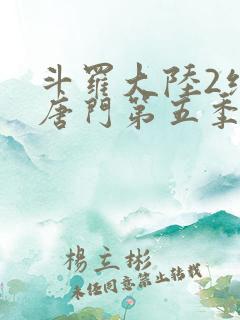 斗羅大陸2絕
唐門第五季
楊立彬
未經同意禁止轉載